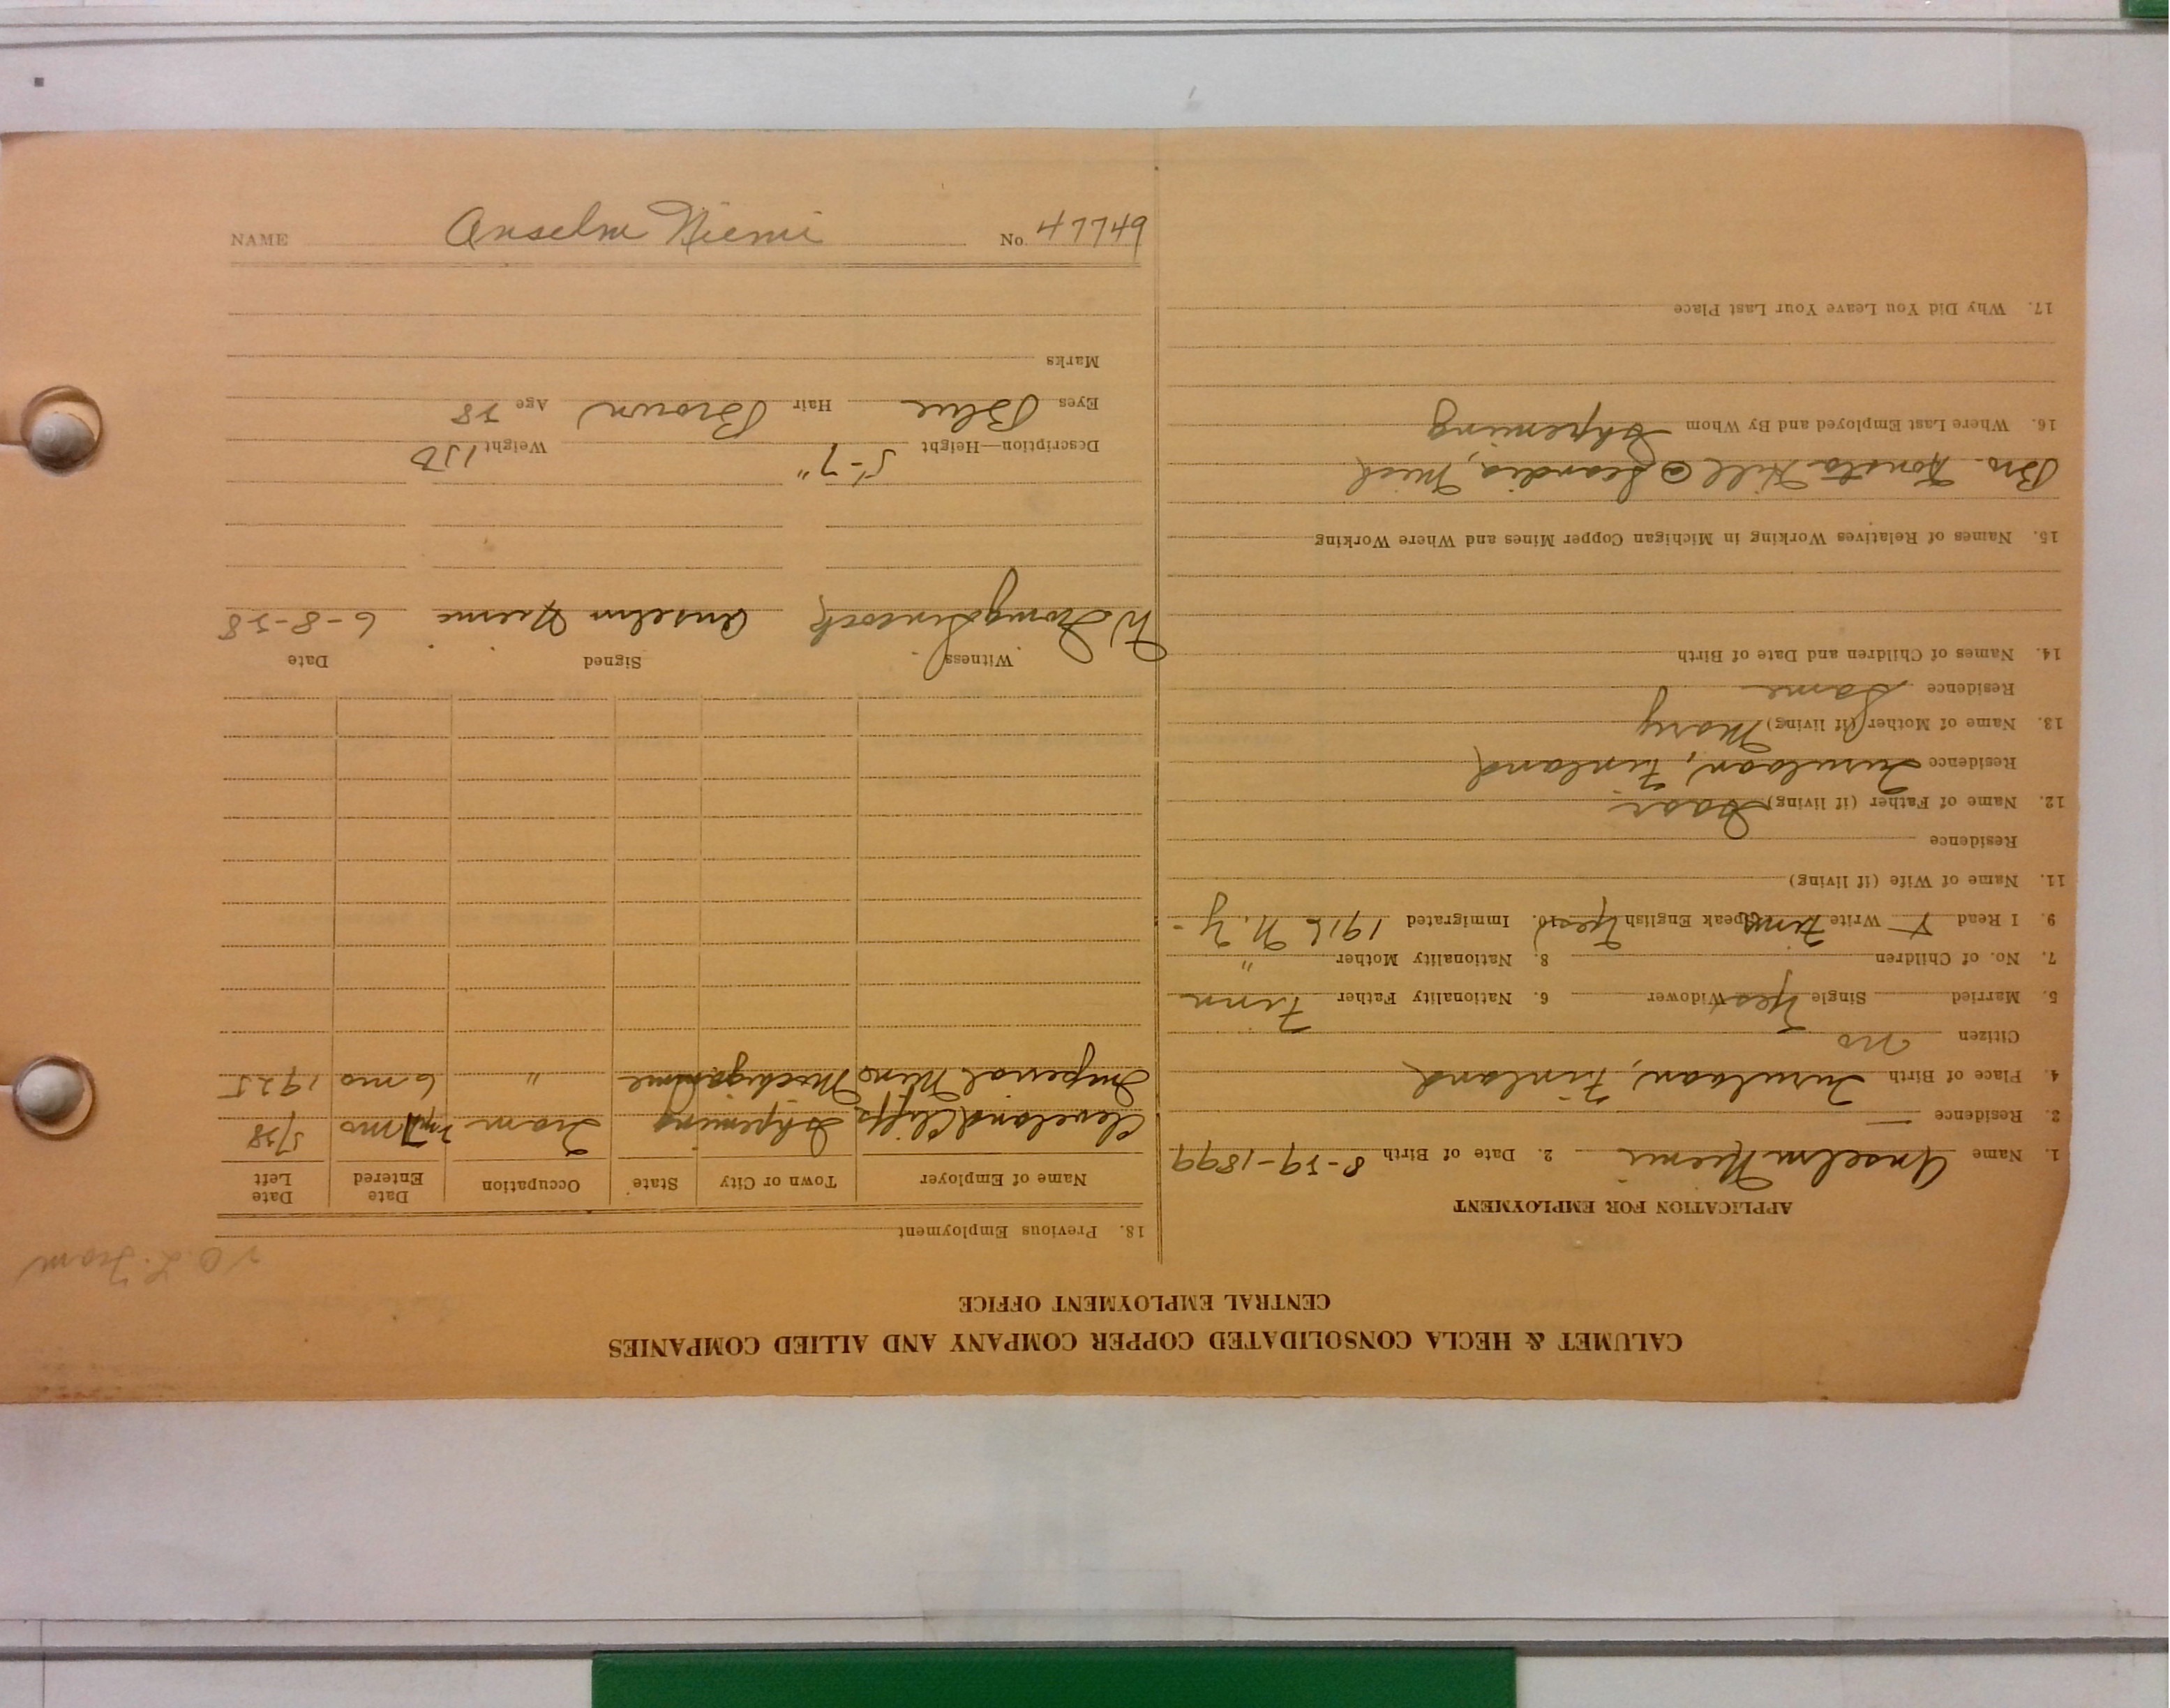 CALUMET & HECLA CONSOLIDATED COPPER COMPANY AND ALLIED COMPANIES
CENTRAL EMPLOYMENT OFFICE
Tram
APPLICATION FOR EMPLOYMENT
1. Name Anselm Niemi 2. Date of Birth 8-29-1899
3. Residence —
4. Place of Birth Finland
Citizen no
5. Married Single Yes Widower 6. Nationality Father Finn
7. No. of Children 8. Nationality Mother "
9. I Read Write Finn Speak English Yes 10. Immigrated 1916 N.Y.
11. Name of Wife (if living)
Residence
12. Name of Father (if living)
Residence Finland
13. Name of Mother (if living) Mary
Residence Same
14. Names of Children and Date of Birth
15. Names of Relatives Working in Michigan Copper Mines and Where Working
Bro. Konsta Hill @ Scandia, Mich
16. Where Last Employed and By Whom Ishpeming
17. Why Did You Leave Your Last Place
18. Previous Employment
Name of Employer Town or City State Occupation Date Entered Date Left
Cleveland Cliffs Ishpeming Tram 7 mo 5/28
Imperial Mine Michigamme " 6 mo 1925
Witness Signed Date
Anselm Niemi 6-8-28
Description—Height 5'-7" Weight 150
Eyes Blue Hair Brown Age 28
Marks
NAME Anselm Niemi No. 47749